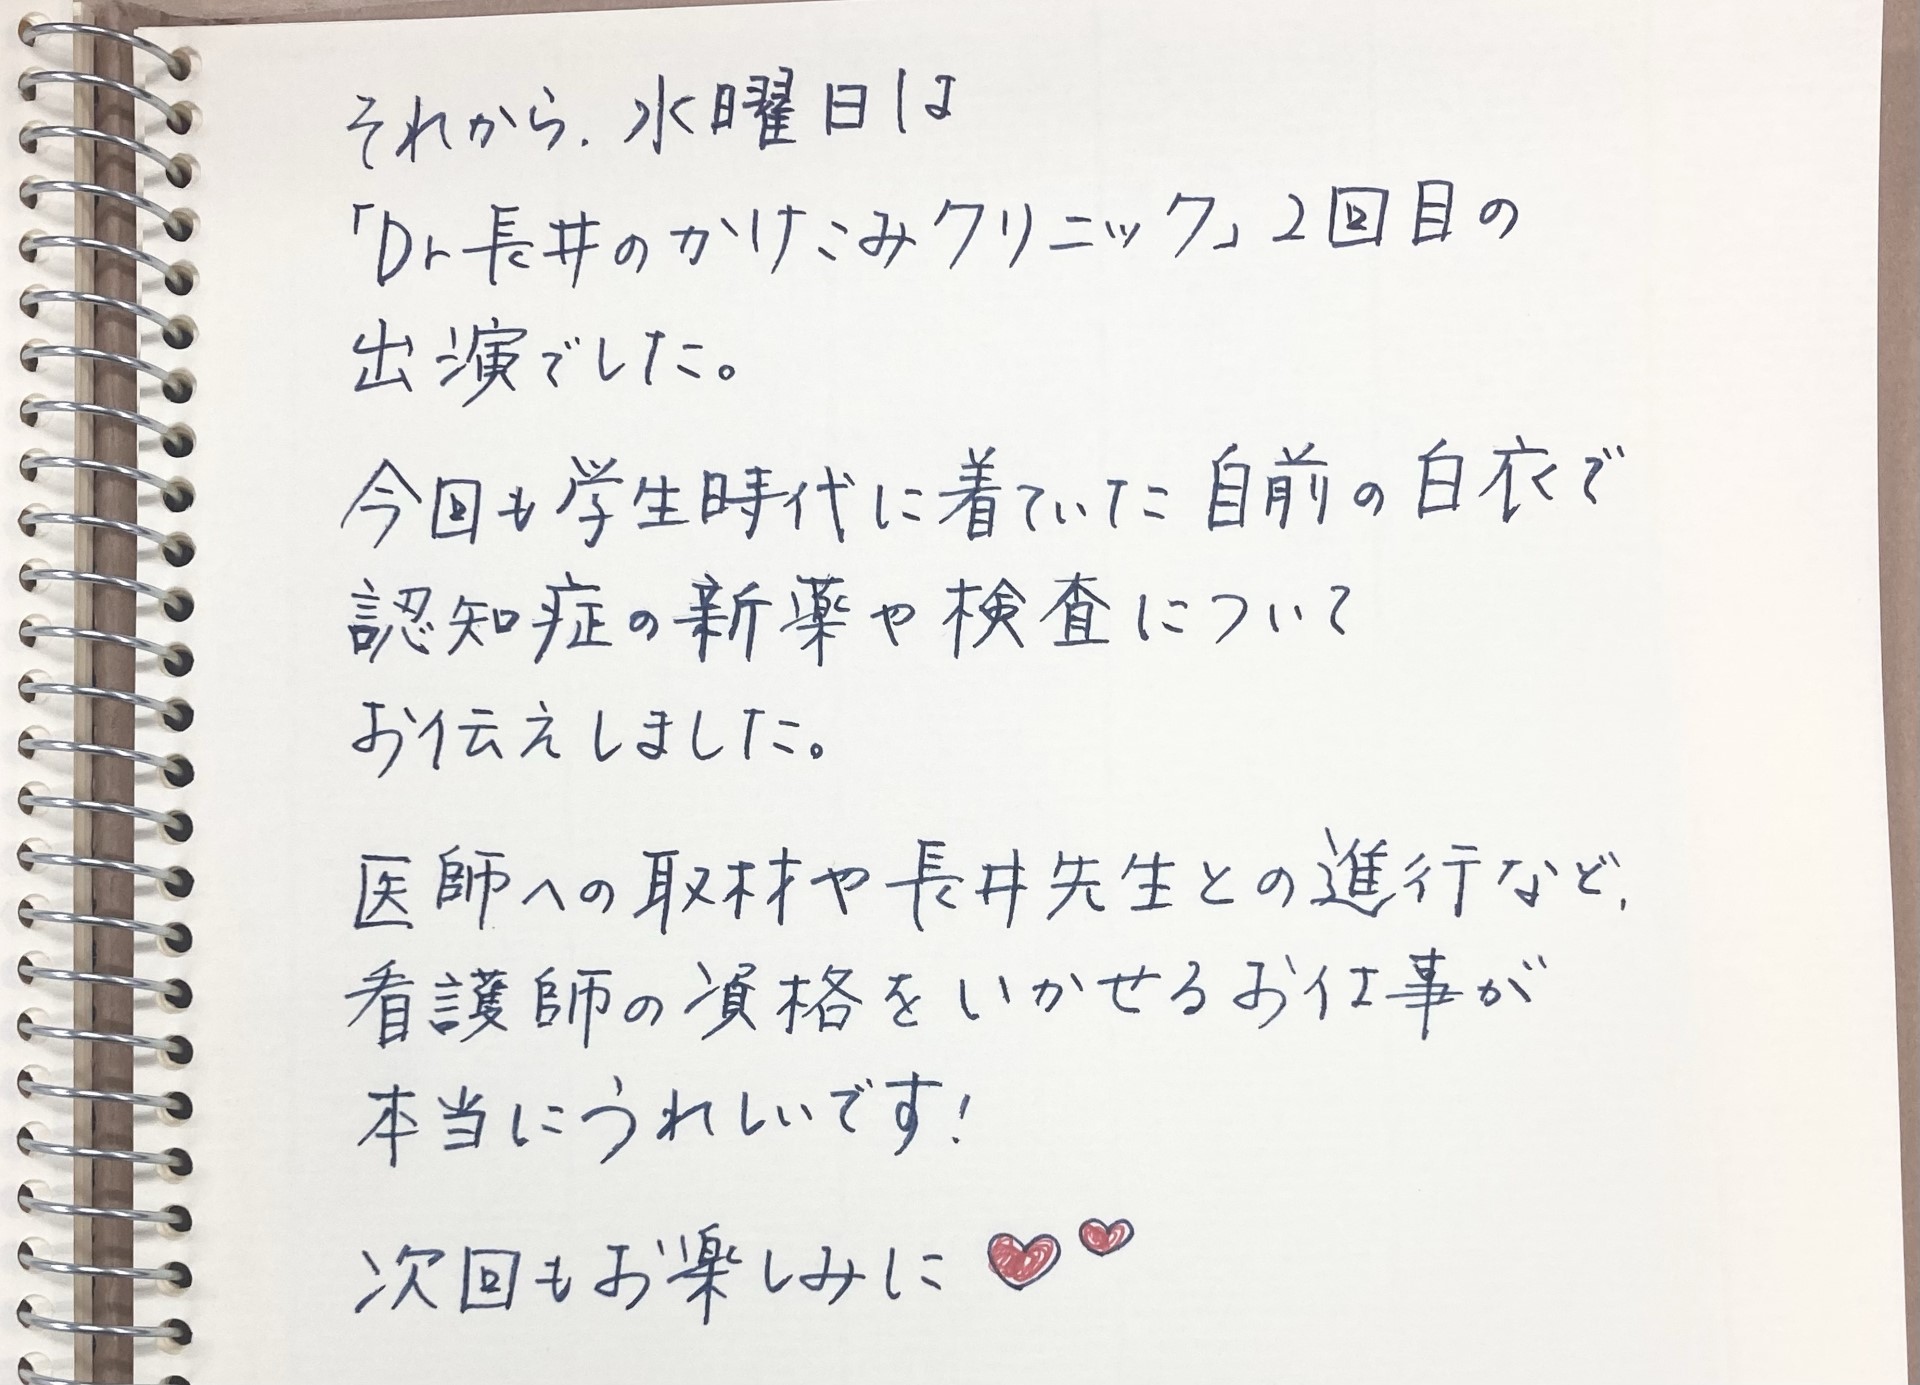 それから、水曜日は
「Dr長井のかけこみクリニック」2回目の
出演でした。
今回も学生時代に着ていた自前の白衣で
認知症の新薬や検査について
お伝えしました。
医師への取材や長井先生との進行など、
看護師の資格をいかせるお仕事が
本当にうれしいです!
次回もお楽しみに